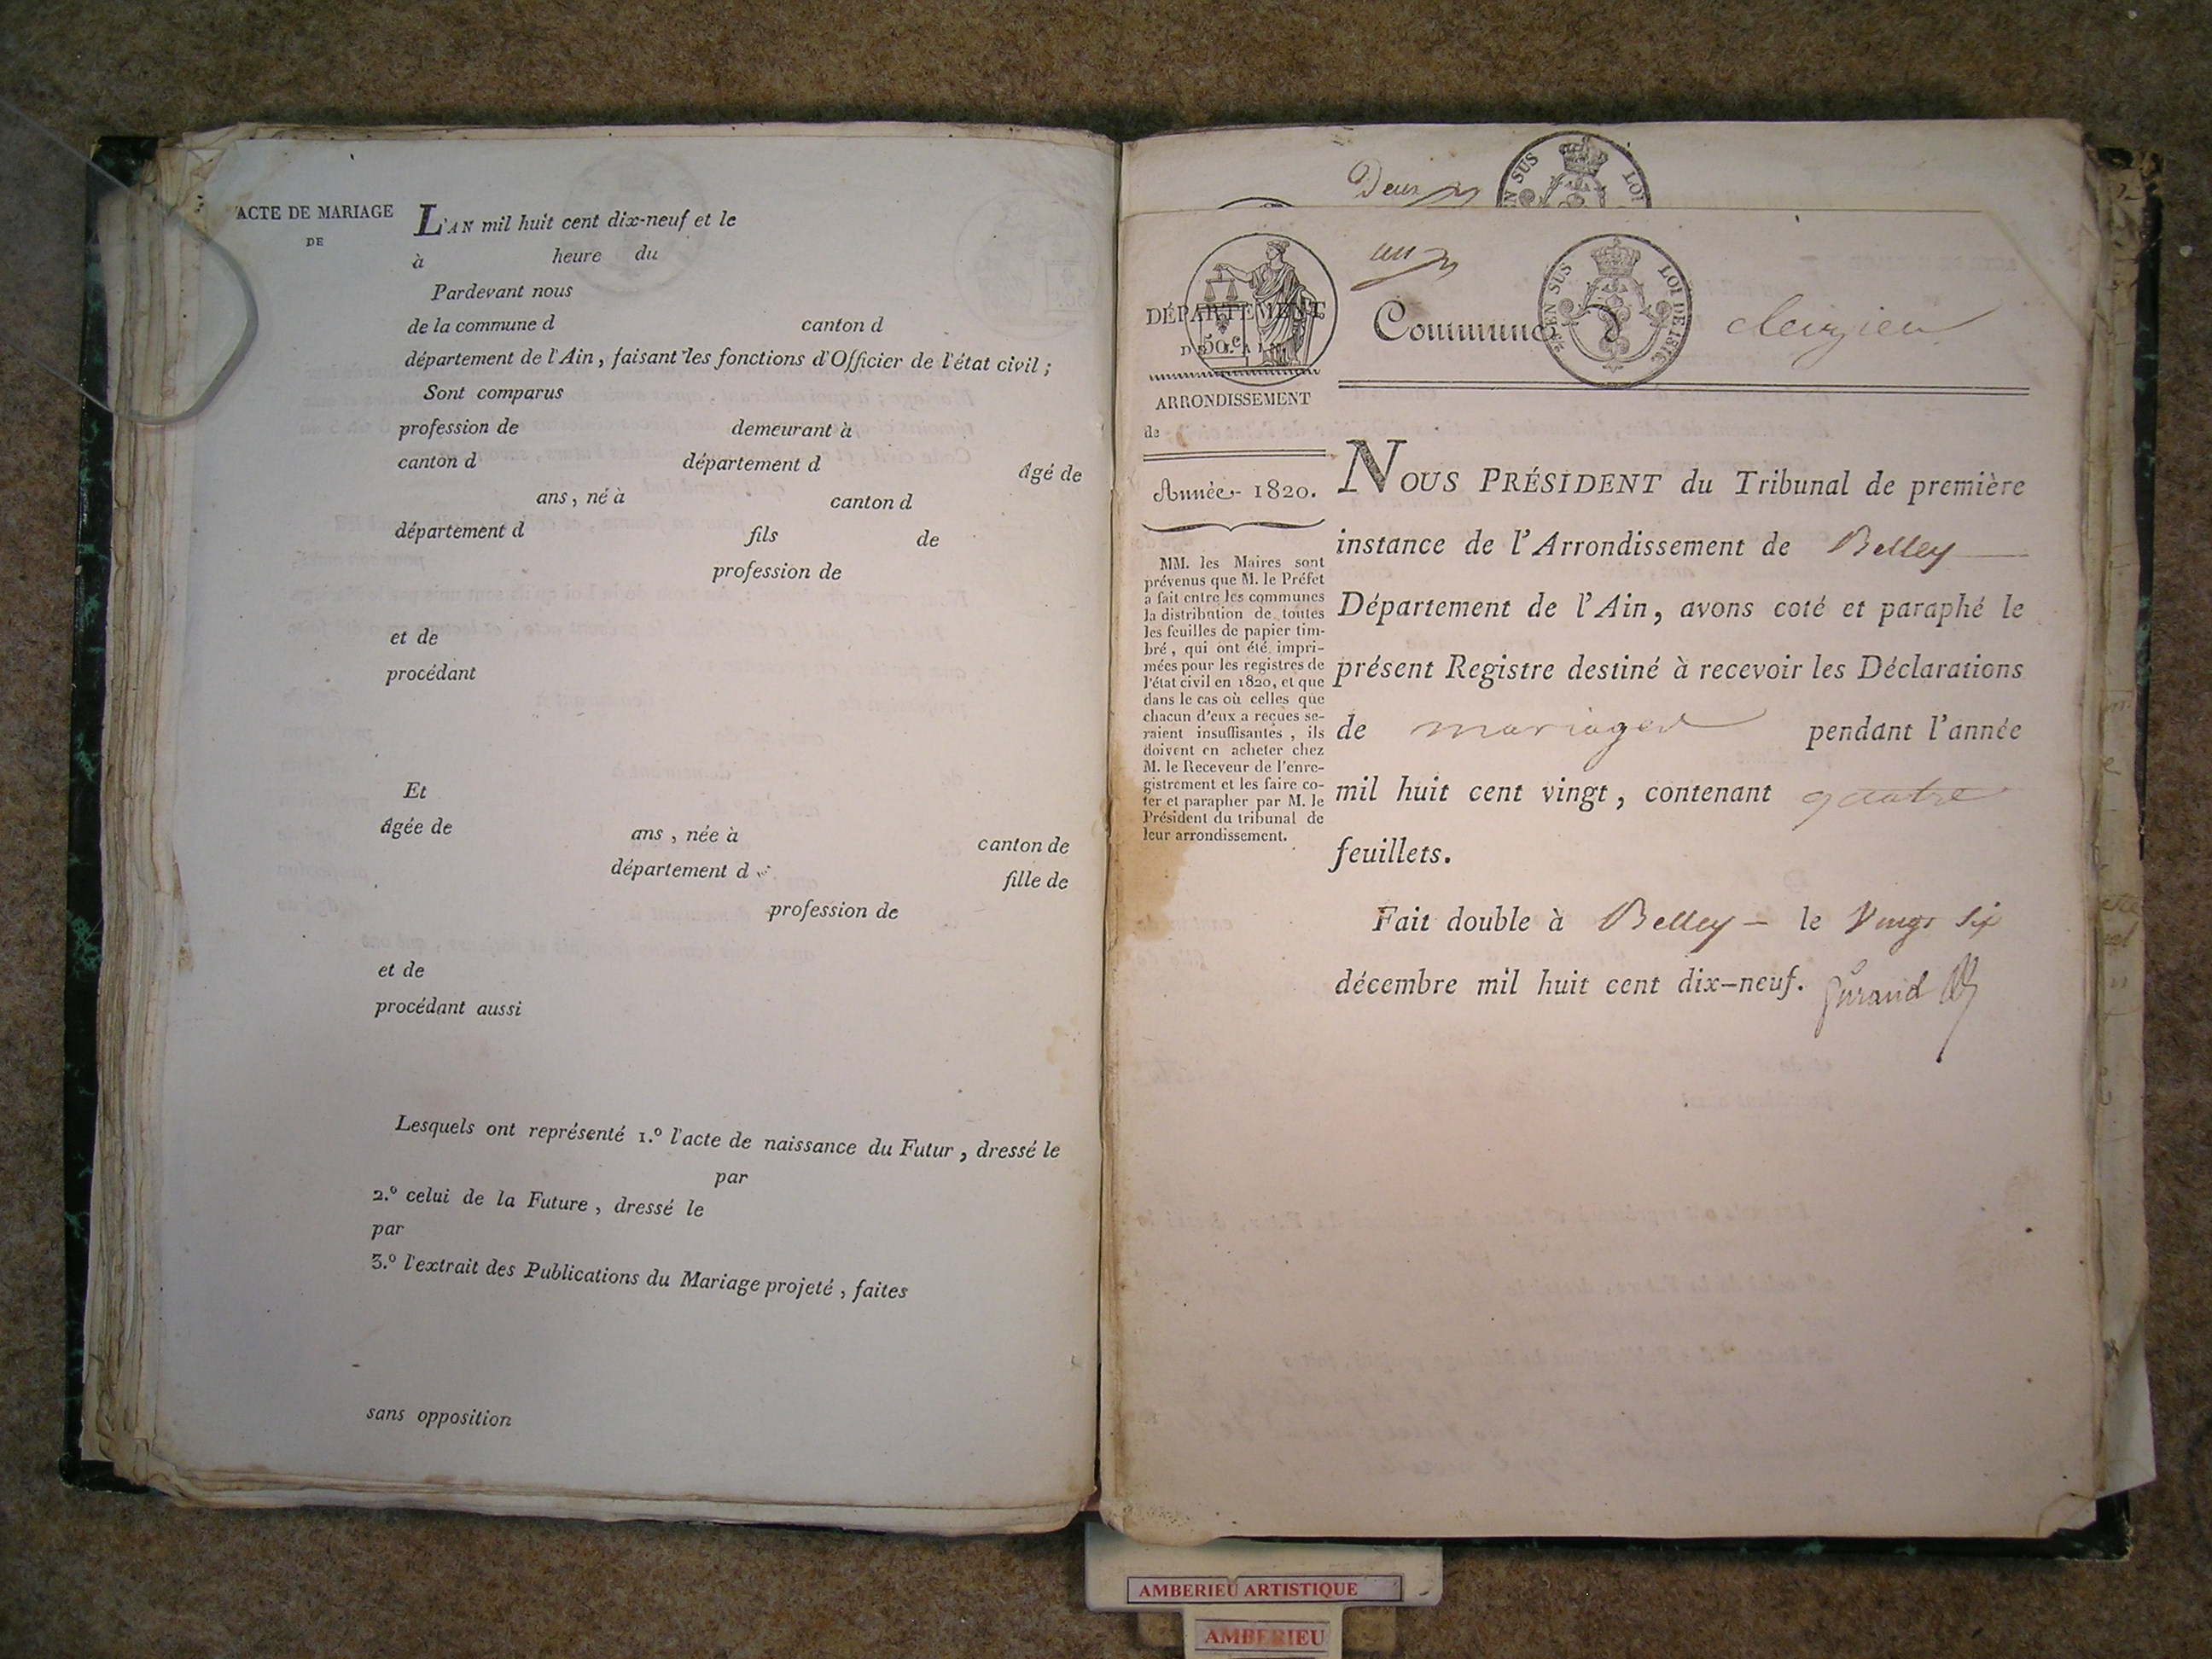 ACTE DE MARIAGE
DE
L'AN mil huit cent dix-neuf et le
à heure du
Pardevant nous
de la commune d canton d
département de l'Ain, faisant les fonctions d'Officier de l'état civil;
Sont comparus
profession de demeurant à
canton d département d âgé de
ans, né à canton d
département d fils de
profession de
et de
procédant
Et
âgée de ans, née à canton de
département d fille de
profession de
et de
procédant aussi
Lesquels ont représenté 1.º l'acte de naissance du Futur, dressé le
par
2.º celui de la Future, dressé le
par
3.º l'extrait des Publications du Mariage projeté, faites
sans opposition
Deux
EN SUS LOI
un
EN SUS LOI DE 1816
DÉPARTEMENT
DE L'AIN
50c
ARRONDISSEMENT
de
Année 1820.
MM. les Maires sont
prévenus que M. le Préfet
a fait entre les communes
la distribution de toutes
les feuilles de papier tim-
bré, qui ont été impri-
mées pour les registres de
l'état civil en 1820, et que
dans le cas où celles que
chacun d'eux a reçues se-
raient insuffisantes, ils
doivent en acheter chez
M. le Receveur de l'enre-
gistrement et les faire co-
ter et parapher par M. le
Président du tribunal de
leur arrondissement.
Commune de cleyzieu
NOUS PRÉSIDENT du Tribunal de première
instance de l'Arrondissement de Belley
Département de l'Ain, avons coté et paraphé le
présent Registre destiné à recevoir les Déclarations
de mariages pendant l'année
mil huit cent vingt, contenant quatre
feuillets.
Fait double à Belley – le Vingt Six
décembre mil huit cent dix-neuf.
AMBERIEU ARTISTIQUE
AMBERIEU